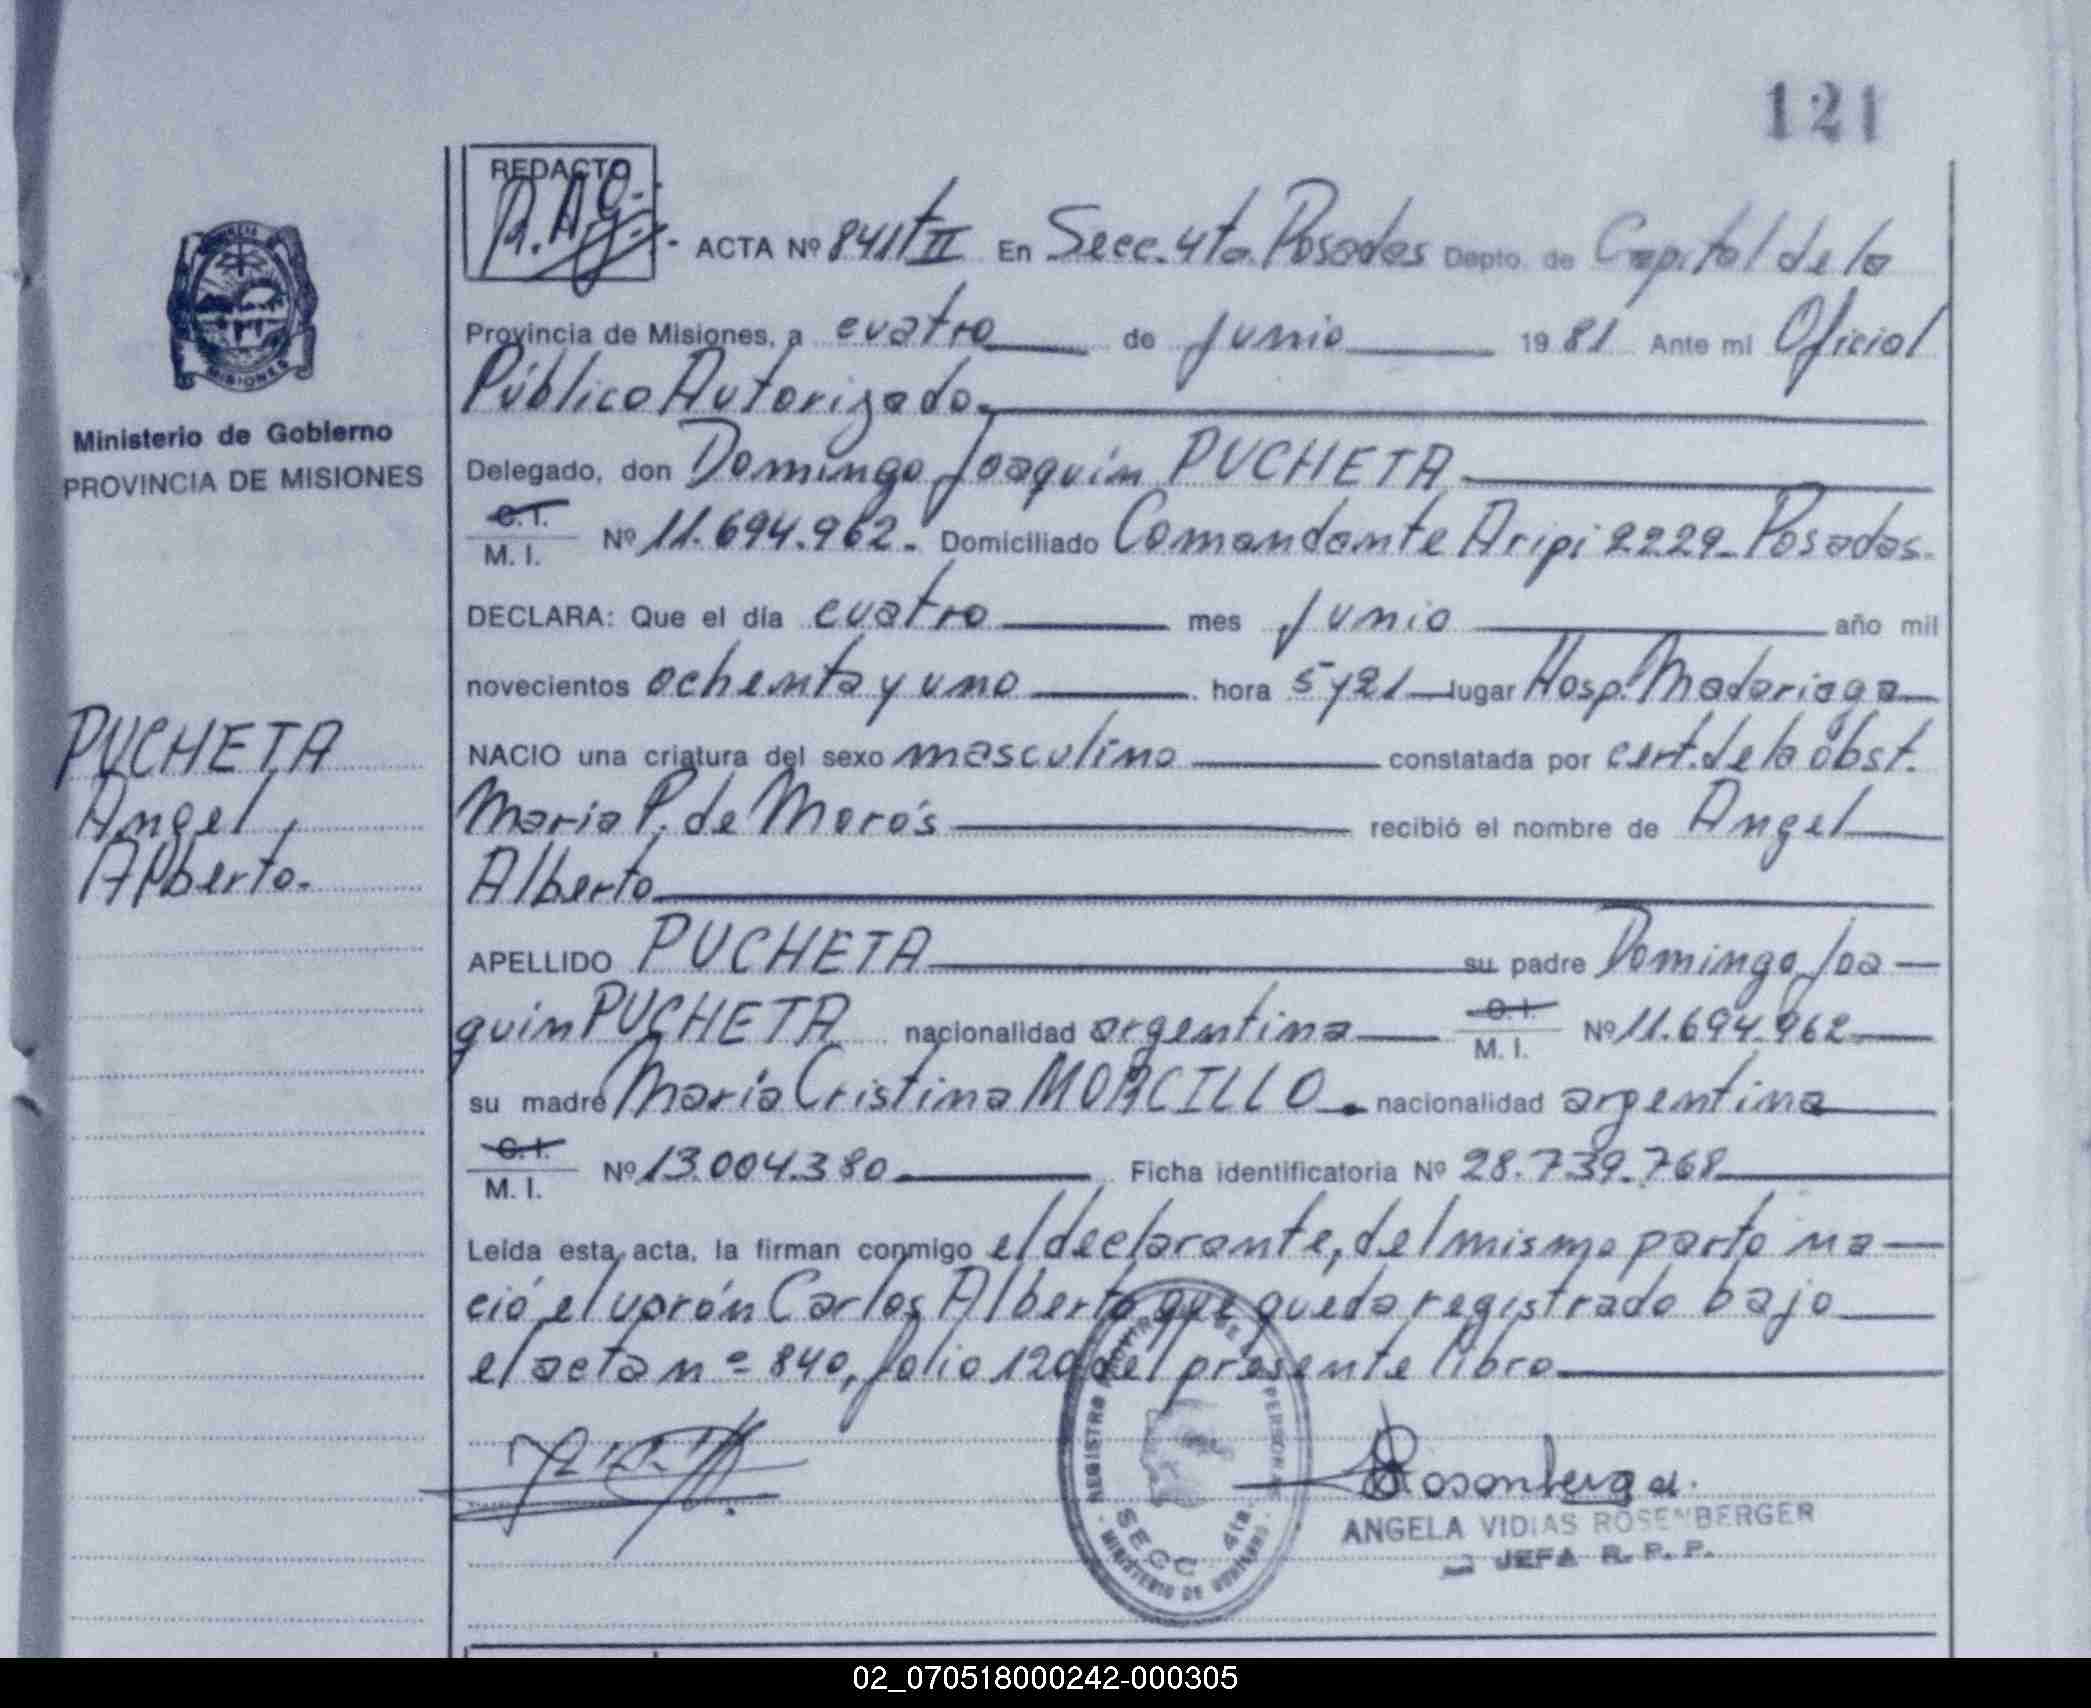 121
REDACTO
ACTA Nº 841 T II En Secc. 4ta. Posadas Depto. de Capital de la
Provincia de Misiones, a cuatro de Junio 1981 Ante mi Oficial
Público Autorizado.
Delegado, don Domingo Joaquin PUCHETA
C. I.
M. I. Nº 11.694.962. Domiciliado Comandante Aripi 2229 - Posadas.
DECLARA: Que el día cuatro mes Junio año mil
novecientos ochenta y uno hora 5 y 21 lugar Hosp. Madariaga
NACIO una criatura del sexo masculino constatada por cert. de la obst.
Maria P. de recibió el nombre de Angel
Alberto
APELLIDO PUCHETA su padre Domingo Joa-
quin PUCHETA nacionalidad argentina C. I.
M. I. Nº 11.694.962
su madre María Cristina MORCILLO. nacionalidad argentina
C. I.
M. I. Nº 13.004.380 Ficha identificatoria Nº 28.739.768
Leída esta acta, la firman conmigo el declarante, del mismo parto na-
ció el varón Carlos Alberto que queda registrado bajo
el acta nº 840, folio 120 del presente libro
Ministerio de Gobierno
PROVINCIA DE MISIONES
PUCHETA
Angel
Alberto.
SECC. 4ta.
ANGELA VIDIAS ROSENBERGER
JEFA R. P. P.
02_070518000242-000305